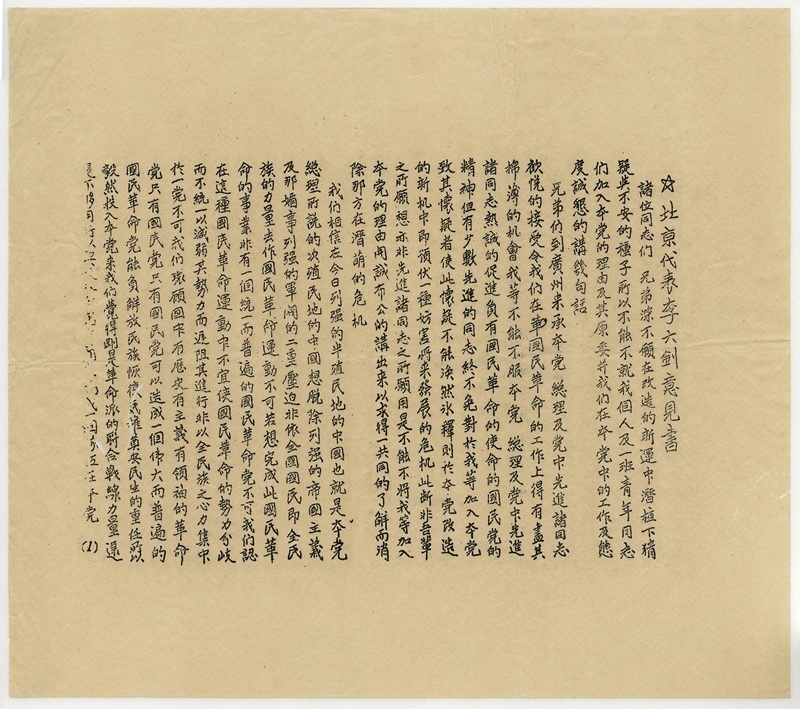 ☆北京代表李大釗意見書
諸位同志們 兄弟深不願在改造的新運中潛植下猜
疑與不安的種子所以不能不就我個人及一班青年同志
們加入本党的理由及其原委并我們在本党中的工作及態
度誠懇的講幾句話
兄弟們到廣州來承本党 總理及党中先進諸同志
歡悅的接受令我們在華國民革命的工作上得有盡其
棉薄的機會我等不能不服本党 總理及党中先進
諸同志熱誠的促進負有國民革命的使命的國民党的
精神但有少數先進的同志終不免對於我等加入本党
致其懷疑者使此懷疑不能渙然冰釋則於本党改造
的新机中即頑伏一種妨害將來發展的危机此斷非吾輩
之所願想亦非先進諸同志之所願用是不能不將我等加入
本党的理由開誠布公的講出來以求得一共同的了解而消
除那方在潛萌的危机
我們相信在今日列强的半殖民地的中國也就是本党
總理所說的次殖民地的中國想脫除列强的帝國主義
及那媚事列强的軍閥的二重壓迫非依全國國民即全民
族的力量去作國民革命運動不可若想完成此國民革
命的事業非有一個統一而普遍的國民革命党不可我們認
在這種國民革命運動中不宜使國民革命的勢力分歧
而不統一以減弱其勢力而遲阻其進行非以全民族之心力集中
於一党不可我們環顧國中有歷史有主義有領袖的革命
党只有國民党只有國民党可以造成一個偉大而普遍的
國民革命党能負解放民族恢復民權奠安民生的重任所以
毅然投入本党來我們覺得剛是革命派的聯合戰線力量還
是不够用所以
(1)